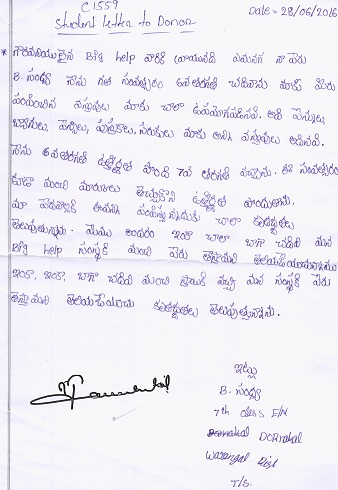 C1559
Student Letter to Donor
Date = 28/06/2016
* గౌరవనీయులైన Big help వారికి వ్రాయునది ఏమనగా నా పేరు
B. సంధ్య నేను గత సంవత్సరం 6వ తరగతి చదివాను మాకు మీరు
పంపించిన వస్తువులు మాకు చాలా ఉపయోగపడినవి. అవి పెన్నులు,
బ్యాగులు, పెన్సిల్లు, పుస్తకాలు, మాకు అన్ని వస్తువులు అందినవి.
నేను 6వ తరగతి ఉత్తీర్ణత పొంది 7వ తరగతి వచ్చాను. ఈ సంవత్సరం
కూడా మంచి మార్కులు తెచ్చుకొని ఉత్తీర్ణత పొందుతాను.
మా చాలా కృతజ్ఞతలు
తెలుపుతున్నాను. మేము అందరం ఇంకా చాలా బాగా చదివి మన
Big help సంస్థకి మంచి పేరు
ఇంకా, ఇంకా, బాగా చదివి మంచి వచ్చి మన సంస్థకి పేరు
కృతజ్ఞతలు తెలుపుతున్నాను.
ఇట్లు
B. సంధ్య
7th class E/M
Dornakal
Warangal Dist
T/S.